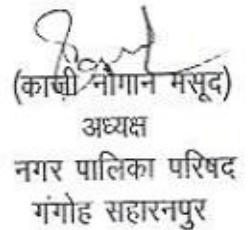 (काज़ी नोमान मसूद)
अध्यक्ष
नगर पालिका परिषद
गंगोह सहारनपुर